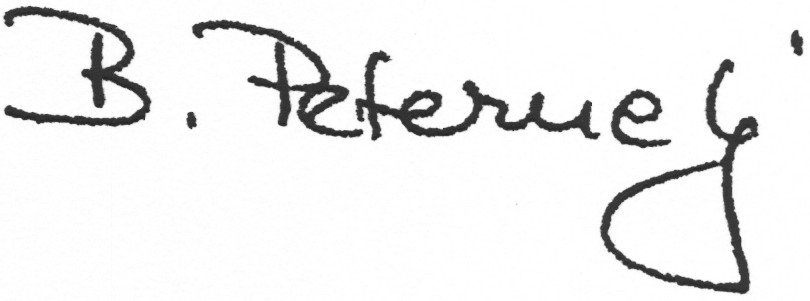 B. Peternelj